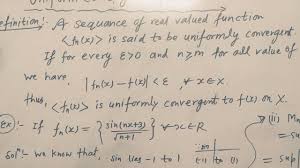 Definition:- A sequence of real valued function
<fn(x)> is said to be uniformly convergent.
If for every ε>0 and n≥m for all value of
we have, |fn(x) - f(x)| < ε, ∀ x∈X.
thus, <fn(x)> is uniformly convergent to f(x) on X.
Ex:- If fn(x) = { sin(nx+3) / √(n+1) } ∀ x∈R
(ii) Mn
= sup
Sol:- we know that, sin lies -1 to 1
sin